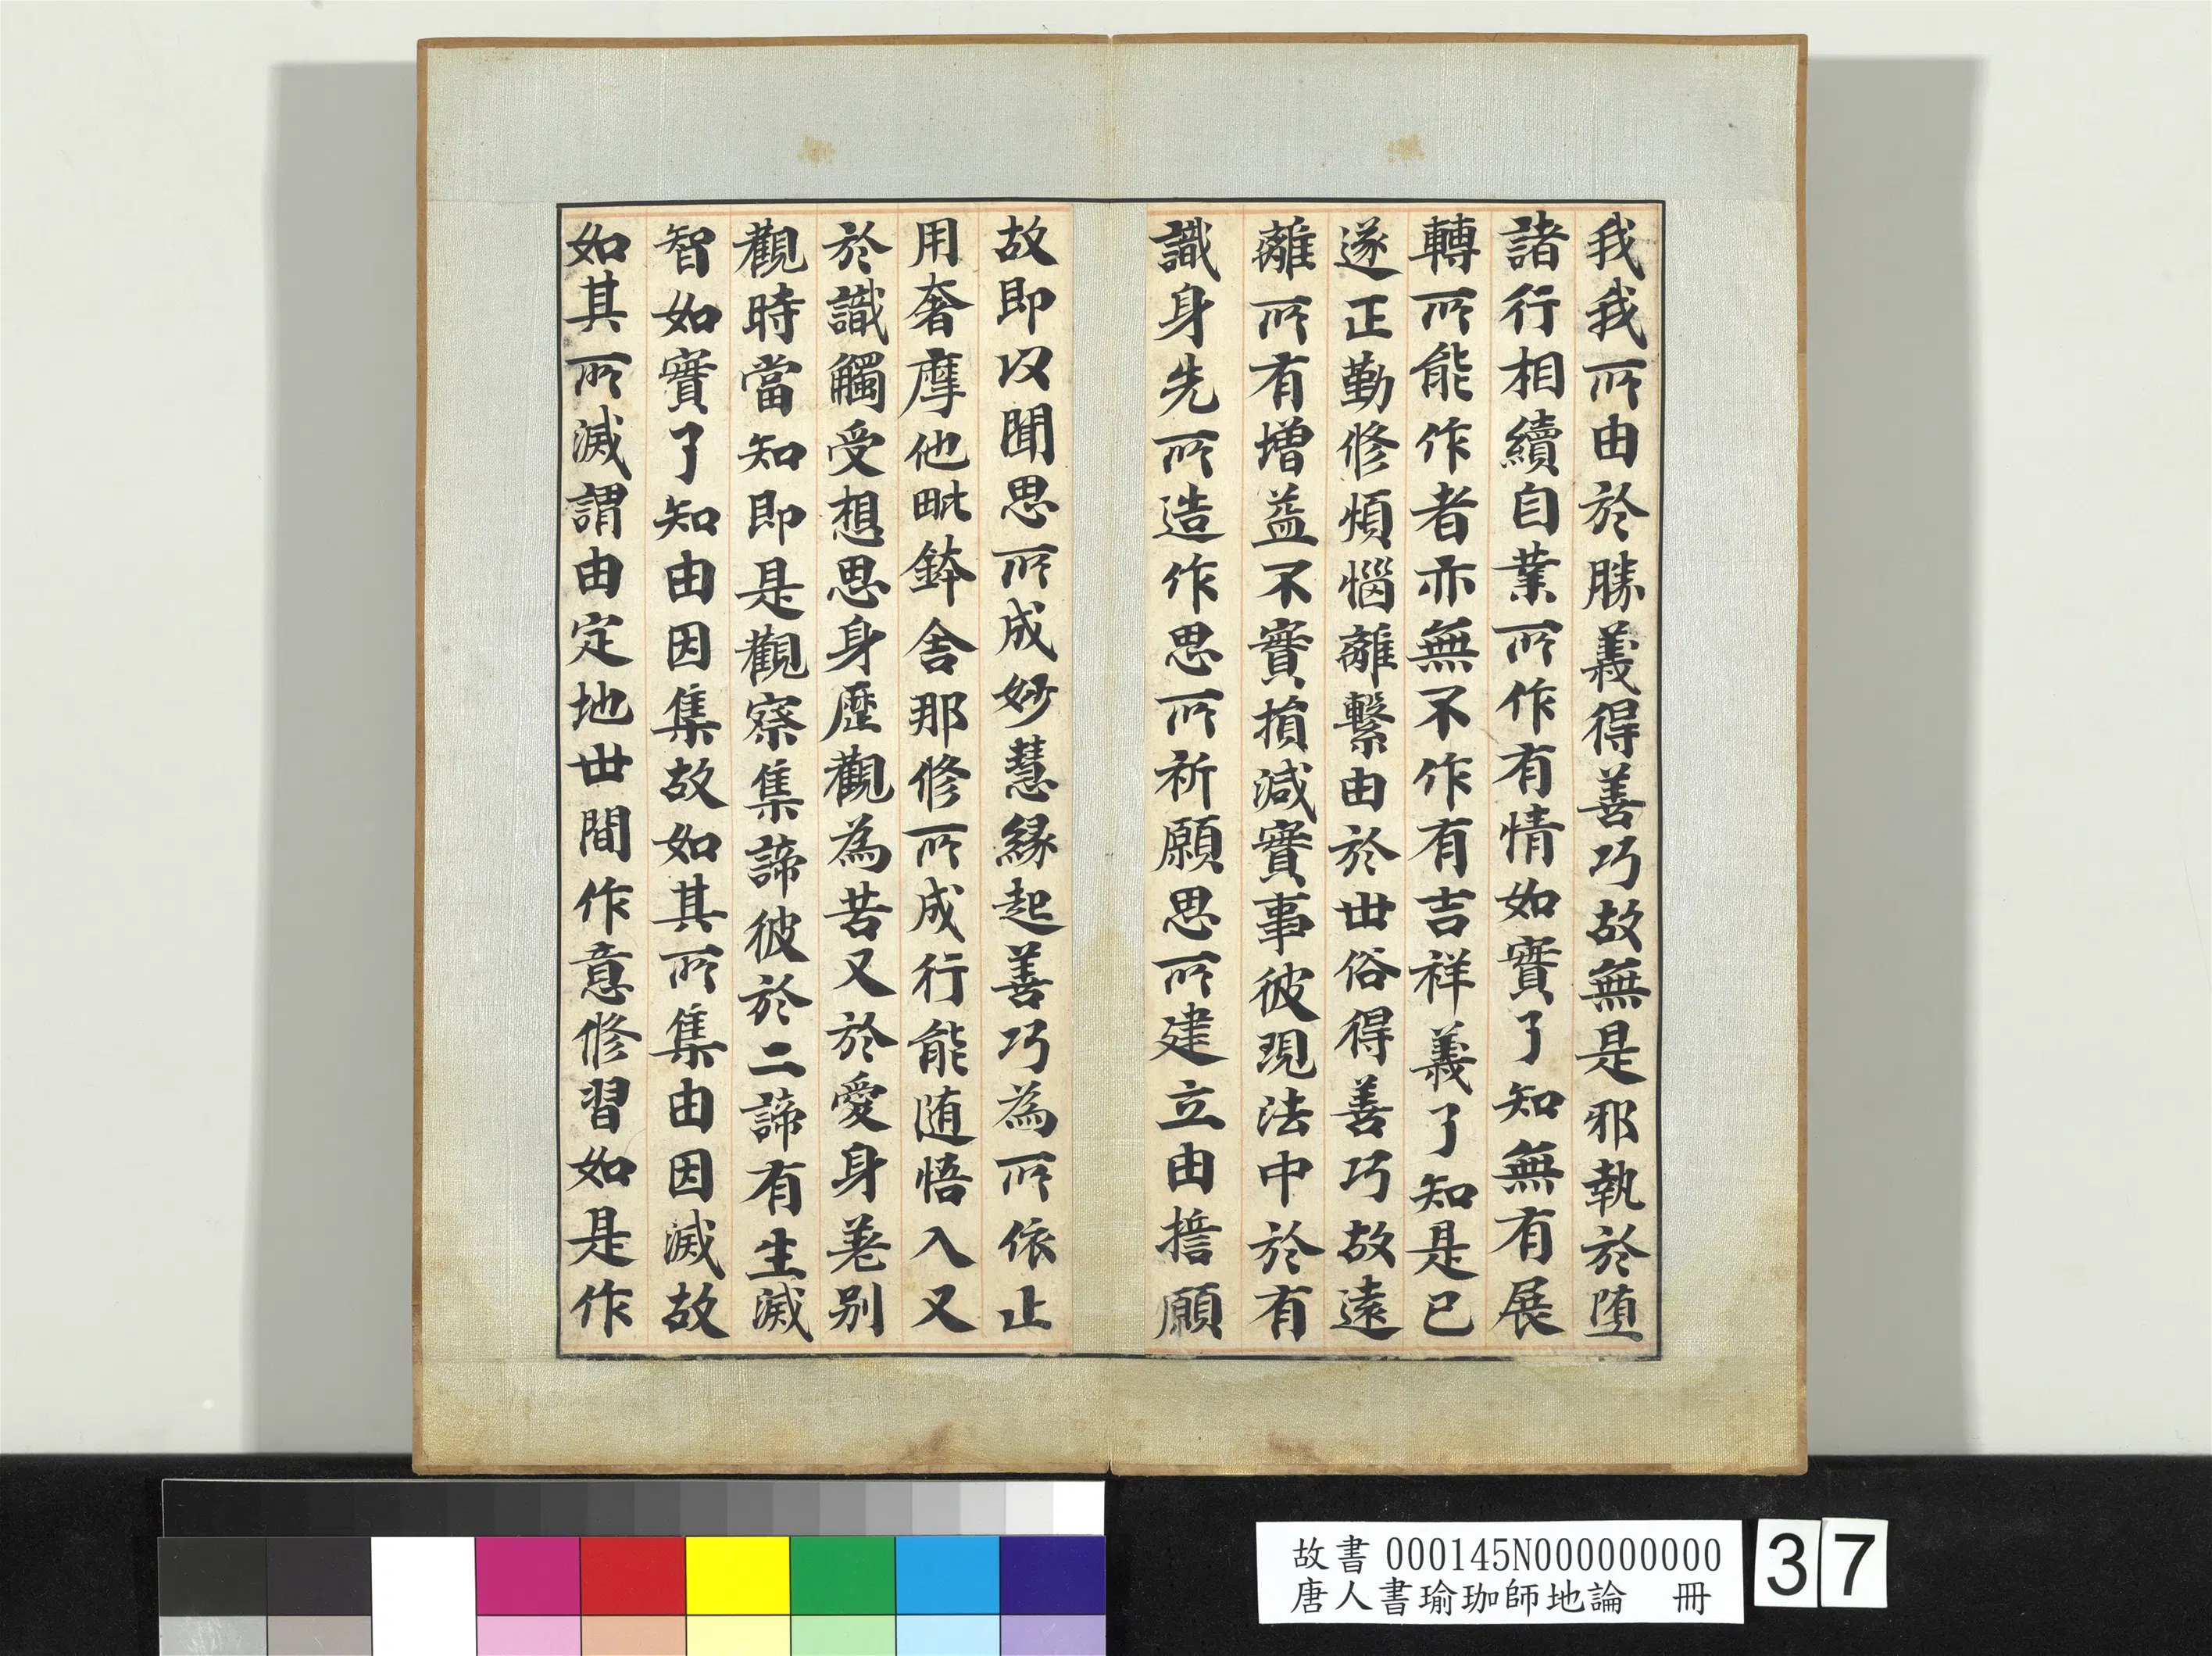 我我所由於勝義得善巧故無是邪執於堕
諸行相續自業所作有情如實了知無有展
轉所能作者亦無不作有吉祥義了知是已
遂正勤修煩惱離繫由於世俗得善巧故遠
離所有增益不實損減實事彼現法中於有
識身先所造作思所祈願思所建立由擔願
故即以聞思所成妙慧緣起善巧為所依止
用奢摩他毗鉢舍那修所成行能随悟入又
於識觸受想思身歷觀為苦又於愛身差別
觀時當知即是觀察集諦彼於二諦有生滅
智如實了知由因集故如其所集由因滅故
如其所滅謂由定地世間作意修習如是作
故書 000145N000000000
唐人書瑜珈師地論 冊
37